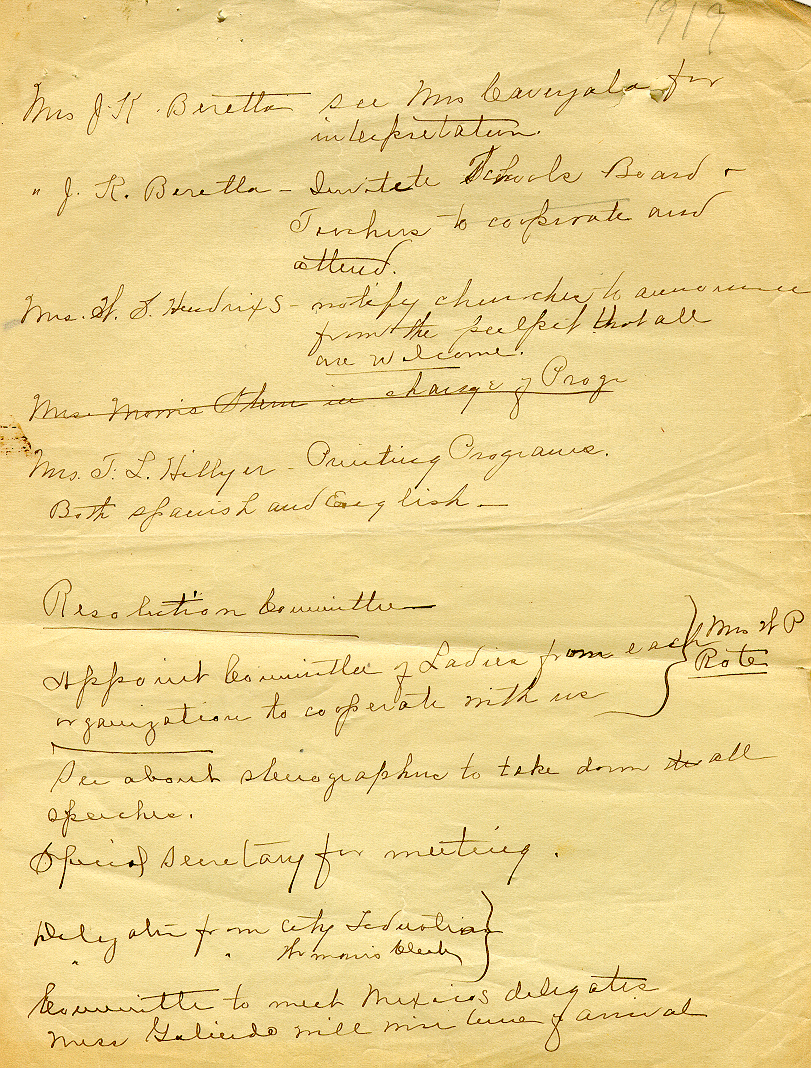 1919
Mrs J. K. Beretta see Mrs for
interpretation.
" J. K. Beretta - Invitete Schools Board &
Teachers to cooperate and
attend.
Mrs. W. S. Hendrixs - notify churches to announce
from the pulpit that all
are welcome.
Mrs. Morris Stern in charge of Progr
Mrs. F. L. Hillyer - Printing Programs.
Both spanish and English -
Resolution Committee
Appoint Committee of Ladies from each } Mrs W P
organization to cooperate with us Rote
See about stenographer to take down the all
speeches.
Special Secretary for meeting.
Delegates from City Federation
" " Womans Club
Committee to meet Mexicos delegates
Miss Galindo will wire time of arrival